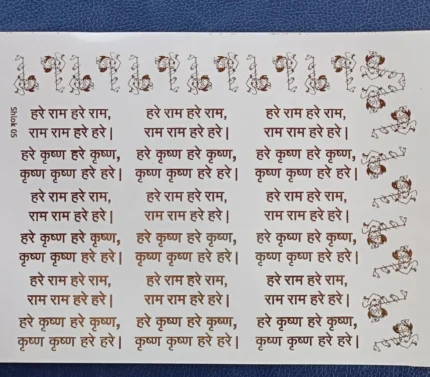 Shlok 05
हरे राम हरे राम, हरे राम हरे राम, हरे राम हरे राम,
राम राम हरे हरे | राम राम हरे हरे | राम राम हरे हरे |
हरे कृष्ण हरे कृष्ण, हरे कृष्ण हरे कृष्ण, हरे कृष्ण हरे कृष्ण,
कृष्ण कृष्ण हरे हरे | कृष्ण कृष्ण हरे हरे | कृष्ण कृष्ण हरे हरे |
हरे राम हरे राम, हरे राम हरे राम, हरे राम हरे राम,
राम राम हरे हरे | राम राम हरे हरे | राम राम हरे हरे |
हरे कृष्ण हरे कृष्ण, हरे कृष्ण हरे कृष्ण, हरे कृष्ण हरे कृष्ण,
कृष्ण कृष्ण हरे हरे | कृष्ण कृष्ण हरे हरे | कृष्ण कृष्ण हरे हरे |
हरे राम हरे राम, हरे राम हरे राम, हरे राम हरे राम,
राम राम हरे हरे | राम राम हरे हरे | राम राम हरे हरे |
हरे कृष्ण हरे कृष्ण, हरे कृष्ण हरे कृष्ण, हरे कृष्ण हरे कृष्ण,
कृष्ण कृष्ण हरे हरे | कृष्ण कृष्ण हरे हरे | कृष्ण कृष्ण हरे हरे |